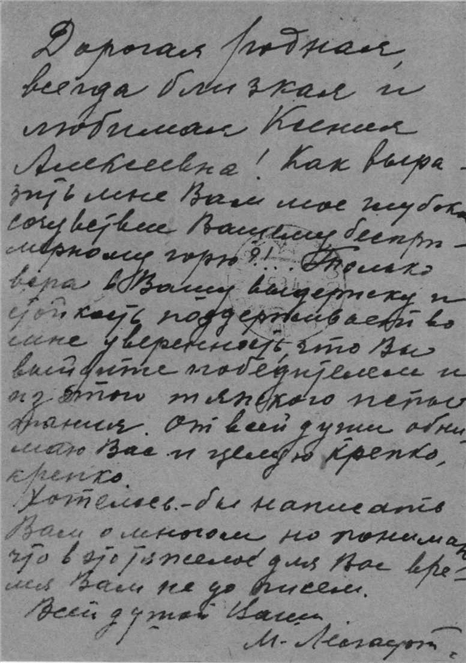 Дорогая родная,
всегда близкая и
любимая Ксения
Алексеевна! Как выра-
зить мне Вам мое глубокое
сочувствие Вашему беспри-
мерному горю?!... Только
вера в Вашу выдержку и
стойкость поддерживает во
мне уверенность, что Вы
выйдите победителем и
из этого тяжкого испы-
тания. От всей души обни-
маю Вас и целую крепко,
крепко.
Хотелось-бы написать
Вам о многом но понимаю
что в это тяжелое для Вас вре-
мя Вам не до писем.
Всей душой Ваш
М.